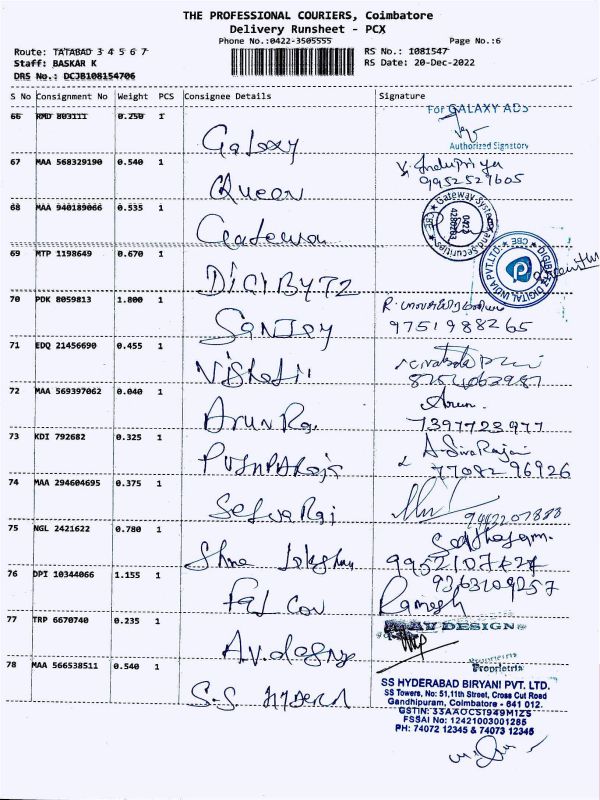 THE PROFESSIONAL COURIERS, Coimbatore
Delivery Runsheet - PCX
Phone No.:0422-3505555 Page No.:6
Route: TATABAD 3 4 5 6 7 RS No.: 1081547
Staff: BASKAR K RS Date: 20-Dec-2022
DRS No.: DCJB108154706
S No Consignment No Weight PCS Consignee Details Signature
66 RMD 803111 0.250 1 Galaxy
For GALAXY ADS
Authorized Signatory
67 MAA 568329190 0.540 1 Queen
9952527605
68 MAA 940189066 0.535 1
Gateway Systems and Securities
CBE
0422
69 MTP 1198649 0.670 1 DIGIBYTZ
DIGIBYTZ DIGITAL INDIA PVT.LTD.
CBE
70 PDK 8059813 1.800 1 Sanjoy
9751988265
71 EDQ 21456690 0.455 1
72 MAA 569397062 0.040 1 Arun Raj
Arun.
7397723977
73 KDI 792682 0.325 1
A. Siva Rajan
7708296926
74 MAA 294604695 0.375 1 Selva Raj
75 NGL 2421622 0.780 1 Shree
76 DPI 10344066 1.155 1 Fal Con
9363109257
Ramesh
77 TRP 6670740 0.235 1
AV DESIGN
Proprietrix
78 MAA 566538511 0.540 1
SS HYDERABAD BIRYANI PVT. LTD.
SS Towers, No: 51,11th Street, Cross Cut Road
Gandhipuram, Coimbatore - 641 012.
GSTIN: 33AAOCS1949M1ZS
FSSAI No: 12421003001285
PH: 74072 12345 & 74073 12345